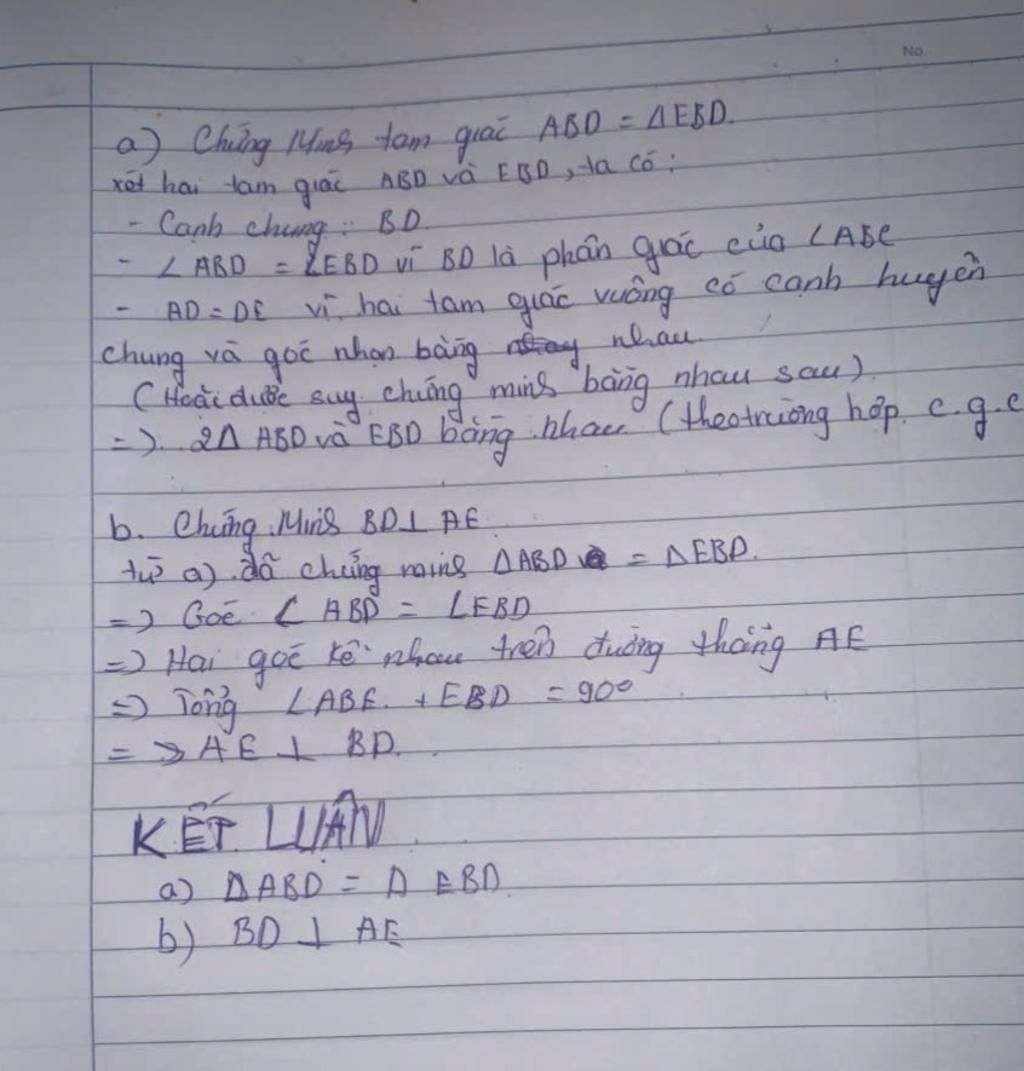 No.
a) Chứng Minh tam giác ABD = ΔEBD.
xét hai tam giác ABD và EBD, ta có:
- Cạnh chung: BD.
- ∠ABD = ∠EBD vì BD là phân giác của ∠ABC
- AD = DE vì hai tam giác vuông có cạnh huyền
chung và góc nhọn bằng nhau.
(Hoặc được suy chứng minh bằng nhau sau)
=> 2Δ ABD và EBD bằng nhau (theo trường hợp c.g.c
b. Chứng Minh BD⊥ AE
từ a) đã chứng minh ΔABD = ΔEBD.
=> Góc ∠ABD = ∠EBD
=> Hai góc kề nhau trên đường thẳng AE
=> Tổng ∠ABE + EBD = 90°
=> AE ⊥ BD.
KẾT LUẬN
a) ΔABD = Δ EBD.
b) BD ⊥ AE